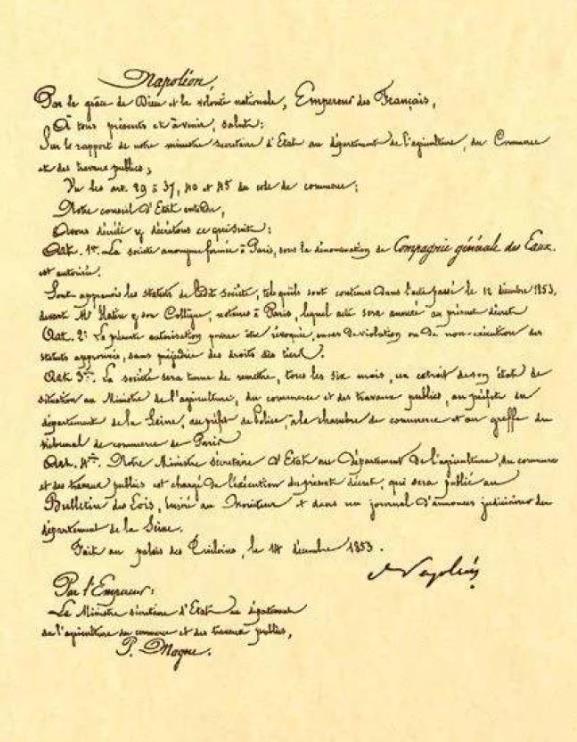 Napoléon,
Par la grâce de Dieu et la volonté nationale, Empereur des Français,
A tous présents et à venir, salut:
Sur le rapport de notre ministre secretaire d'Etat au département de l'agriculture, du Commerce
et des travaux publics;
Vu les art. 29 à 37, 40 et 45 du code de commerce;
Notre conseil d'Etat entendu,
Avons décrété et décrétons ce qui suit:
Art. 1er. La société anonyme formée à Paris, sous la dénomination de Compagnie générale des Eaux.
est autorisée.
Sont approuvés les statuts de ladite société, tels qu'ils sont contenus dans l'acte passé le 12 décembre 1853,
devant Me Hatin et son Collègue, notaires à Paris, lequel acte sera annexé au présent décret
Art. 2: La présente autorisation pourra être révoquée, en cas de violation ou de non-exécution des
statuts approuvés, sans préjudice des droits des tiers.
Art. 3: La société sera tenue de remettre, tous les six mois, un extrait de son état de
situation au Ministre de l'agriculture, du commerce et des travaux publics, au préfet du
département de la Seine, au préfet de Police, à la chambre de commerce et au greffe du
tribunal de commerce de Paris
Art. 4: Notre Ministre secrétaire d'Etat au Département de l'agriculture, du commerce
et des travaux publics est chargé de l'exécution du présent décret, qui sera publié au
Bulletin des Lois, inséré au Moniteur et dans un journal d'annonces judiciaires du
département de la Seine.
Fait au palais des Tuileries, le 14 décembre 1853.
Napoléon
Par l'Empereur:
Le Ministre secrétaire d'Etat au département
de l'agriculture du commerce et des travaux publics,
P. Magne.